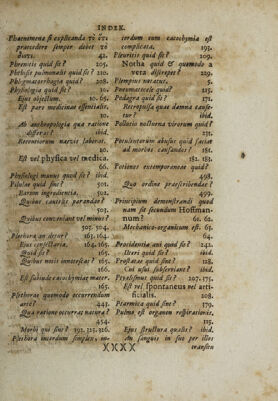 INDEX.
Phaenomena si explicanda τὸ ὅτι
praecedere semper debet τὸ
διότι. 42.
Phrenitis quid sit? 105.
Phthisis pulmonalis quid sit? 210.
Physiologia quid sit? 10.
Ejus objectum. 10. 65.
Est pars medicinae essentialis.
10.
Ab anthropologia qua ratione
differat? ibid.
Recentiorum naevis laborat.
20.
Est vel physica vel medica.
66.
Physiologi munus quod sit? ibid.
Pilulae quid sint? 501.
Earum ingredientia. 502.
Quibus cautelis parandae?
503.
Quibus conveniant vel minus?
503. 504.
Plethora an detur? 163. 164.
Ejus consectaria. 164. 165.
Quid sit? 165.
Quibus notis innotescat? 165.
166.
Est subinde cacochymiae mater.
165.
Plethorae quomodo occurrendum
arte? 443.
Qua ratione occurrat natura?
454.
Morbi qui sint? 192. 325. 326.
Plethora interdum simplex, in-
terdum cum cacochymia est
complicata. 193.
Pleuritis quid sit? 109.
Notha quid & quomodo a
vera disserpet? 229.
Plempus notatus. 5.
Pneumatocele quid? 215.
Podagra quid sit? 171.
Retropulsa quae damna cause-
tur? ibid.
Pollutio nocturna virorum quid?
231.
Potulentorum abusus quid faciat
ad morbos causandos? 181.
181. 182.
Potiones extemporaneae quid?
498.
Quo ordine praescribendae?
499.
Principium demonstrandi quod-
nam sit secundum Hoffman-
num? 60. 62.
Mechanico-organicum est. 63.
63.
Procidentia ani quid sit? 242.
Uteri quid sit? ibid.
Prostatae quid sint? 128.
Cui usui subserviant? ibid.
Ptyalismus quid sit? 207. 175.
Est vel spontaneus vel arti-
ficialis. 208.
Ptarmica quid sint? 179.
Pulmo est organon respirationis.
113.
Ejus structura qualis? ibid.
An sanguis in suo per illos
XXXX transitu